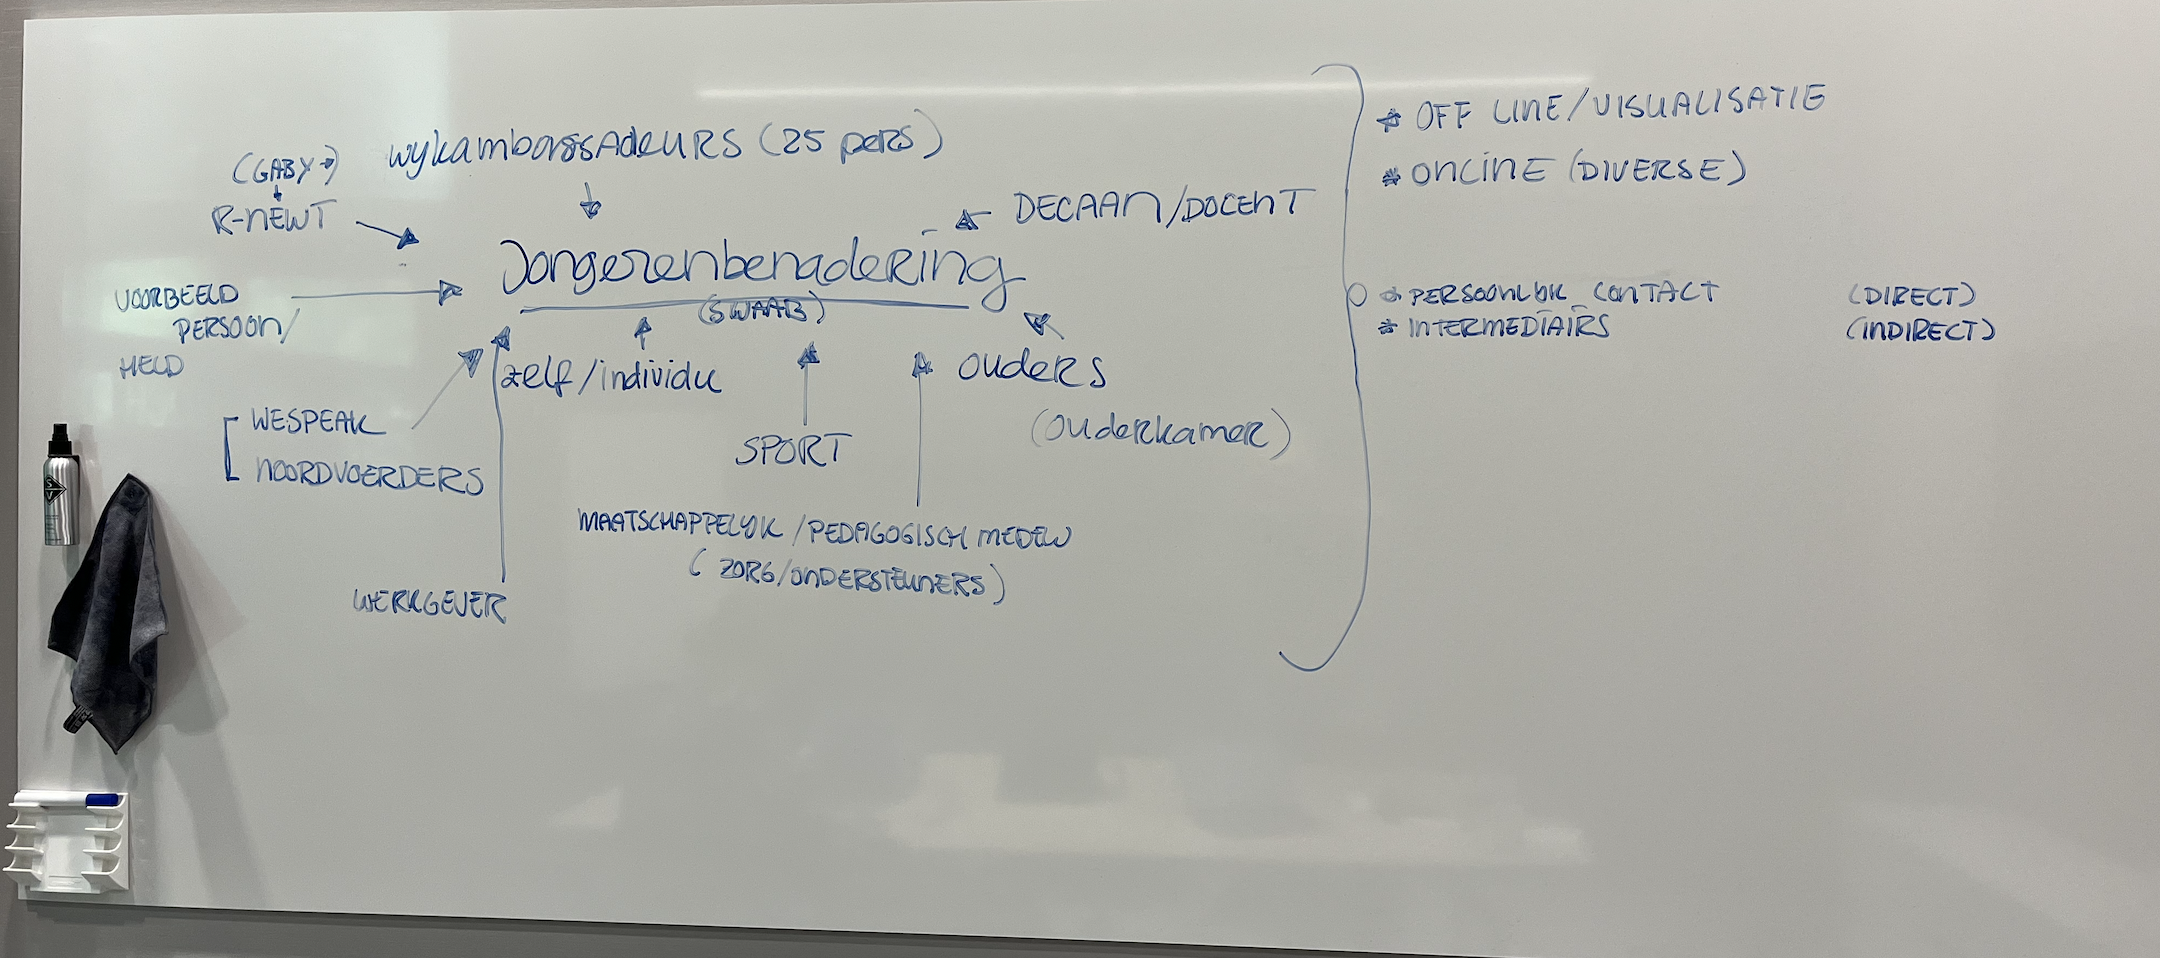 (GABY→)
wykambassadeurs (25 pers)
R-NEWT
DECAAN/DOCENT
Jongerenbenadering
(SWAAB)
VOORBEELD
PERSOON/
HELD
zelf/individu
ouders
(ouderkamer)
WESPEAK
NOORDVOERDERS
SPORT
MAATSCHAPPELYK /PEDAGOGISCH MEDEW
(ZORG/ONDERSTEUNERS)
WERKGEVER
* OFF LINE/VISUALISATIE
* ONLINE (DIVERSE)
* PERSOONLYK CONTACT (DIRECT)
* INTERMEDIAIRS (INDIRECT)